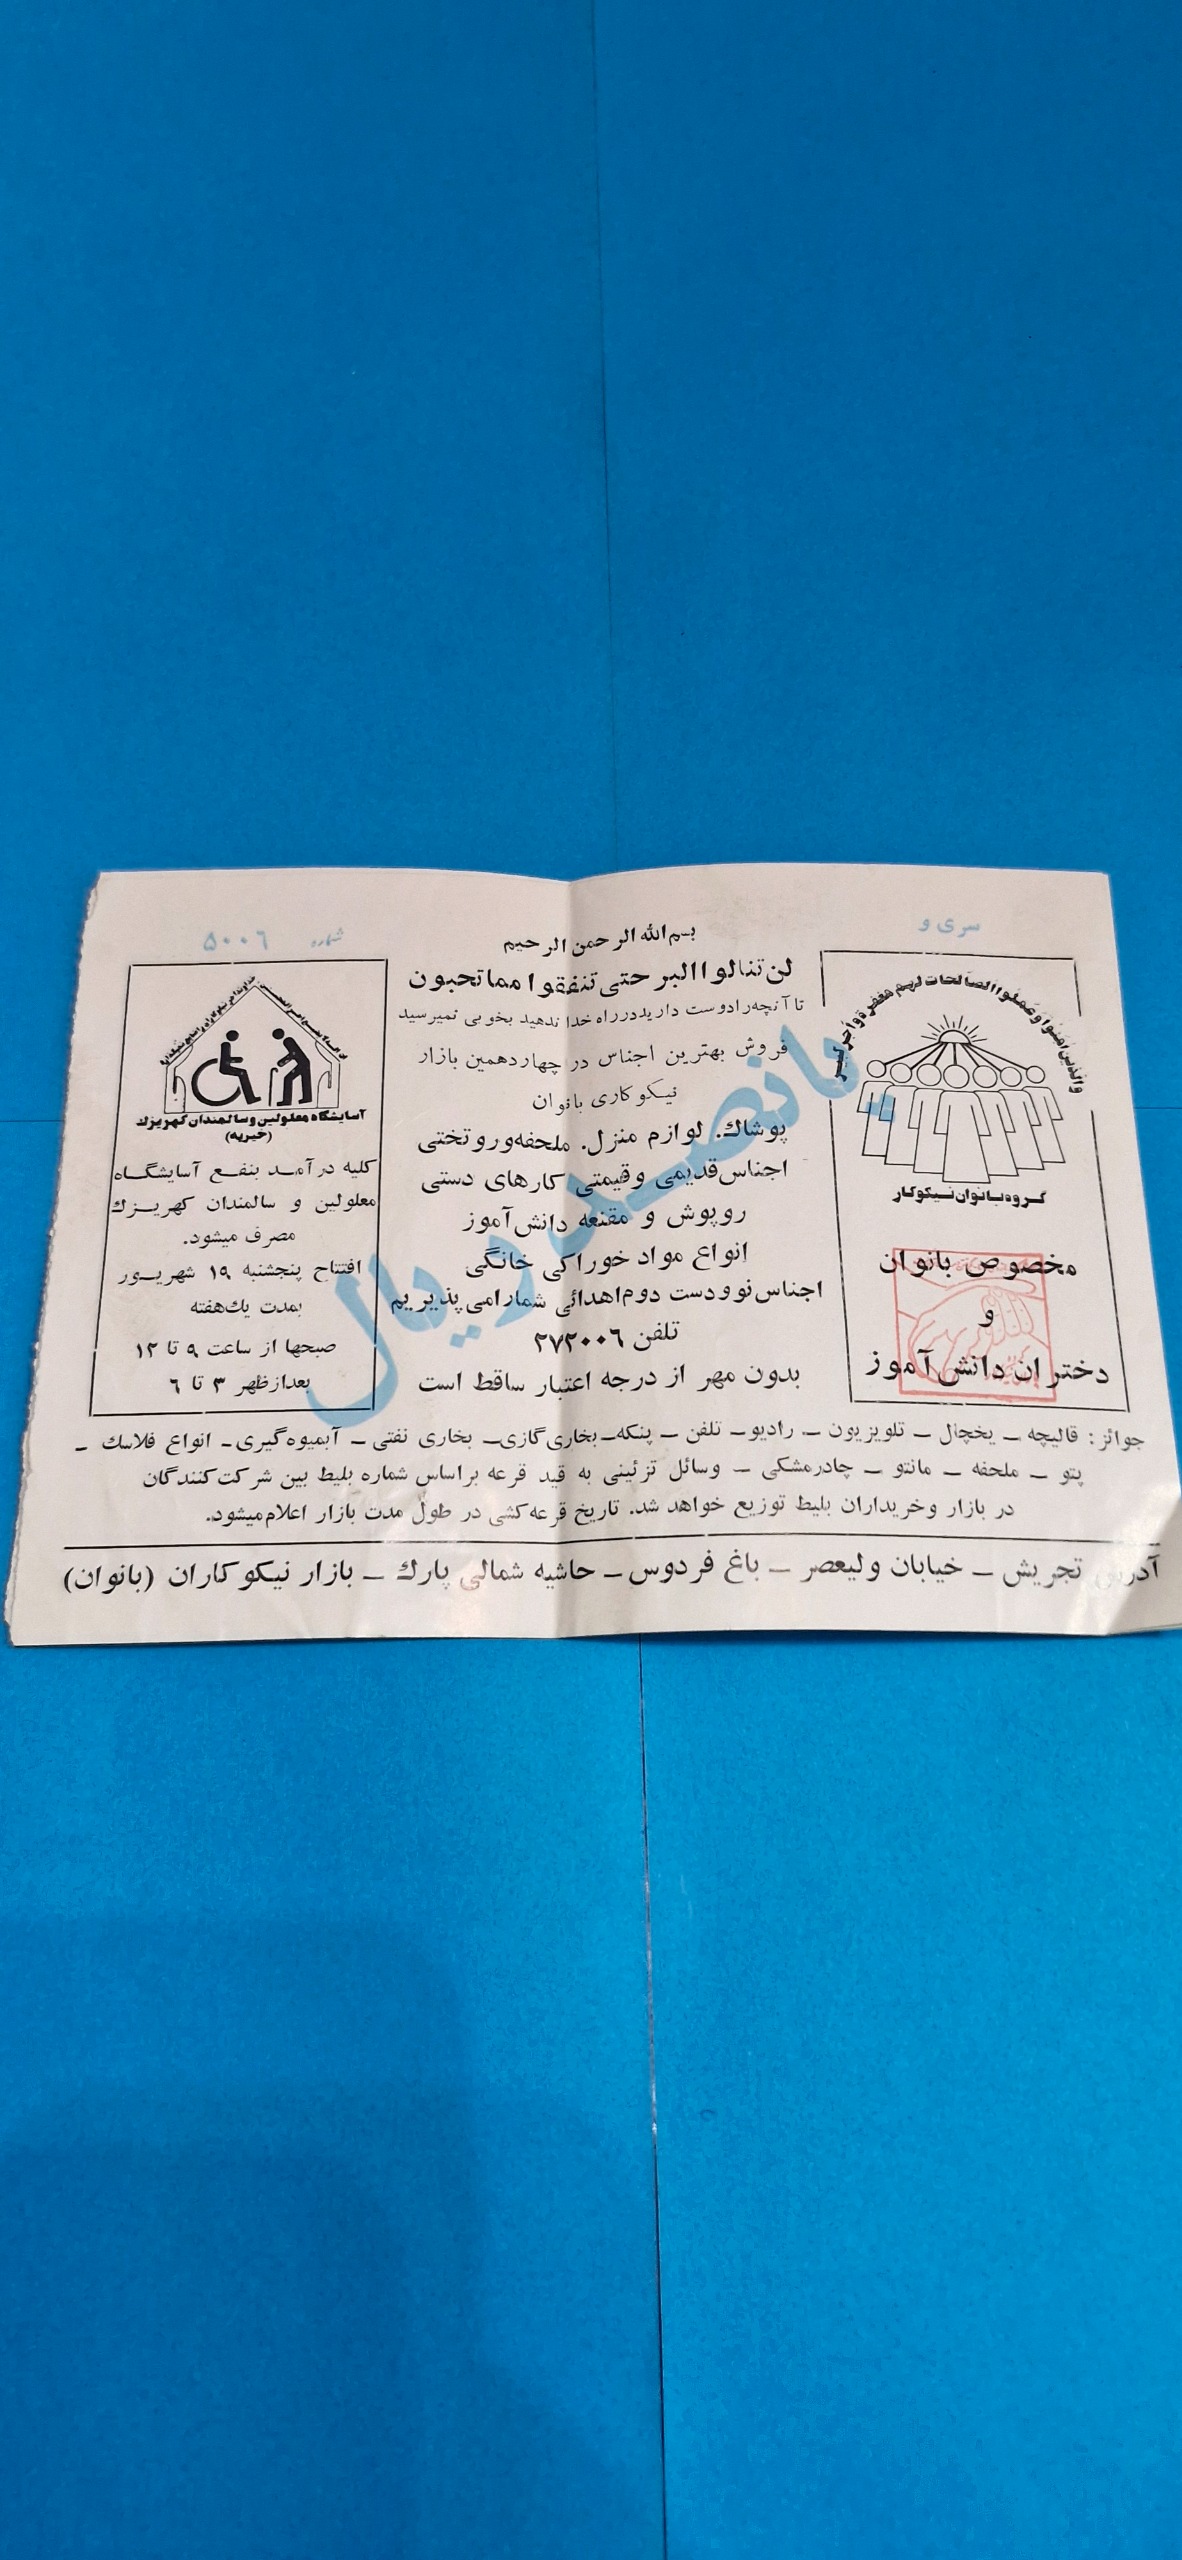 سری و
شماره ۵۰۰۶
بسم الله الرحمن الرحیم
لن تنالوا البر حتی تنفقوا مما تحبون
تا آنچه را دوست دارید در راه خدا ندهید بخوبی نمیرسید
فروش بهترین اجناس در چهاردهمین بازار
نیکوکاری بانوان
پوشاك. لوازم منزل. ملحفه و روتختی
اجناس قدیمی و قیمتی کارهای دستی
روپوش و مقنعه دانش آموز
انواع مواد خوراکی خانگی
اجناس نو و دست دوم اهدائی شما را می پذیریم
تلفن ۲۷۲۰۰۶
بدون مهر از درجه اعتبار ساقط است
پانصد ریال
والذین امنوا وعملوا الصالحات لهم مغفرة واجر کبیر
گروه بانوان نیکوکار
مخصوص بانوان
و
دختران دانش آموز
آسایشگاه معلولین و سالمندان کهریزك
(خیریه)
کلیه درآمد بنفع آسایشگاه
معلولین و سالمندان کهریزك
مصرف میشود.
افتتاح پنجشنبه ۱۹ شهریور
بمدت یك هفته
صبحها از ساعت ۹ تا ۱۲
بعدازظهر ۳ تا ۶
جوائز: قالیچه – یخچال – تلویزیون – رادیو – تلفن – پنکه – بخاری گازی – بخاری نفتی – آبمیوه گیری – انواع فلاسك –
پتو – ملحفه – مانتو – چادرمشکی – وسائل تزئینی به قید قرعه بر اساس شماره بلیط بین شرکت کنندگان
در بازار و خریداران بلیط توزیع خواهد شد. تاریخ قرعه کشی در طول مدت بازار اعلام میشود.
آدرس تجریش – خیابان ولیعصر – باغ فردوس – حاشیه شمالی پارك – بازار نیکوکاران (بانوان)